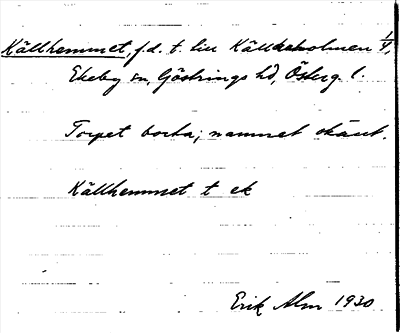 Källhemmet, f.d. t. till Källeholmen 1/4,
Ekeby sn, Göstrings hd, Österg. l.
Torpet borta; namnet okänt.
Källhemmet t ek
Erik Alm 1930